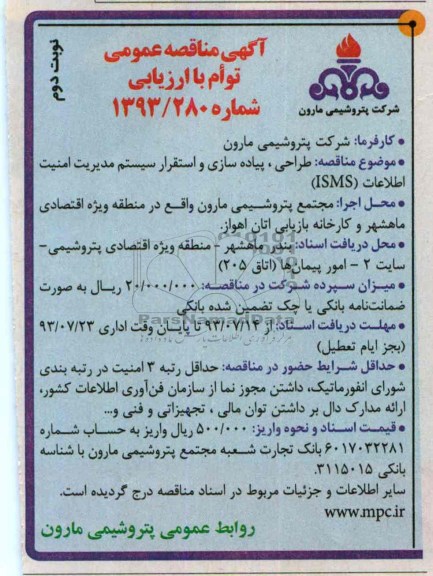 نوبت دوم
آگهی مناقصه عمومی
توأم با ارزیابی
شماره ۱۳۹۳/۲۸۰
شرکت پتروشیمی مارون
• کارفرما: شرکت پتروشیمی مارون
• موضوع مناقصه: طراحی ، پیاده سازی و استقرار سیستم مدیریت امنیت
اطلاعات (ISMS)
• محل اجرا: مجتمع پتروشیمی مارون واقع در منطقه ویژه اقتصادی
ماهشهر و کارخانه بازیابی اتان اهواز.
• محل دریافت اسناد: بندر ماهشهر - منطقه ویژه اقتصادی پتروشیمی-
سایت ۲ - امور پیمان‌ها (اتاق ۲۰۵)
• میزان سپرده شرکت در مناقصه: ۲۰/۰۰۰/۰۰۰ ریال به صورت
ضمانت‌نامه بانکی یا چک تضمین شده بانکی
• مهلت دریافت اسناد: از ۹۳/۰۷/۱۴ تا پایان وقت اداری ۹۳/۰۷/۲۳
(بجز ایام تعطیل)
• حداقل شرایط حضور در مناقصه: حداقل رتبه ۳ امنیت در رتبه بندی
شورای انفورماتیک، داشتن مجوز نما از سازمان فن‌آوری اطلاعات کشور،
ارائه مدارک دال بر داشتن توان مالی ، تجهیزاتی و فنی و...
• قیمت اسناد و نحوه واریز: ۵۰۰/۰۰۰ ریال واریز به حساب شماره
۶۰۱۷۰۳۲۲۸۱ بانک تجارت شعبه مجتمع پتروشیمی مارون با شناسه
بانکی ۳۱۱۵۰۱۵.
سایر اطلاعات و جزئیات مربوط در اسناد مناقصه درج گردیده است.
www.mpc.ir
روابط عمومی پتروشیمی مارون
ParsNamadData